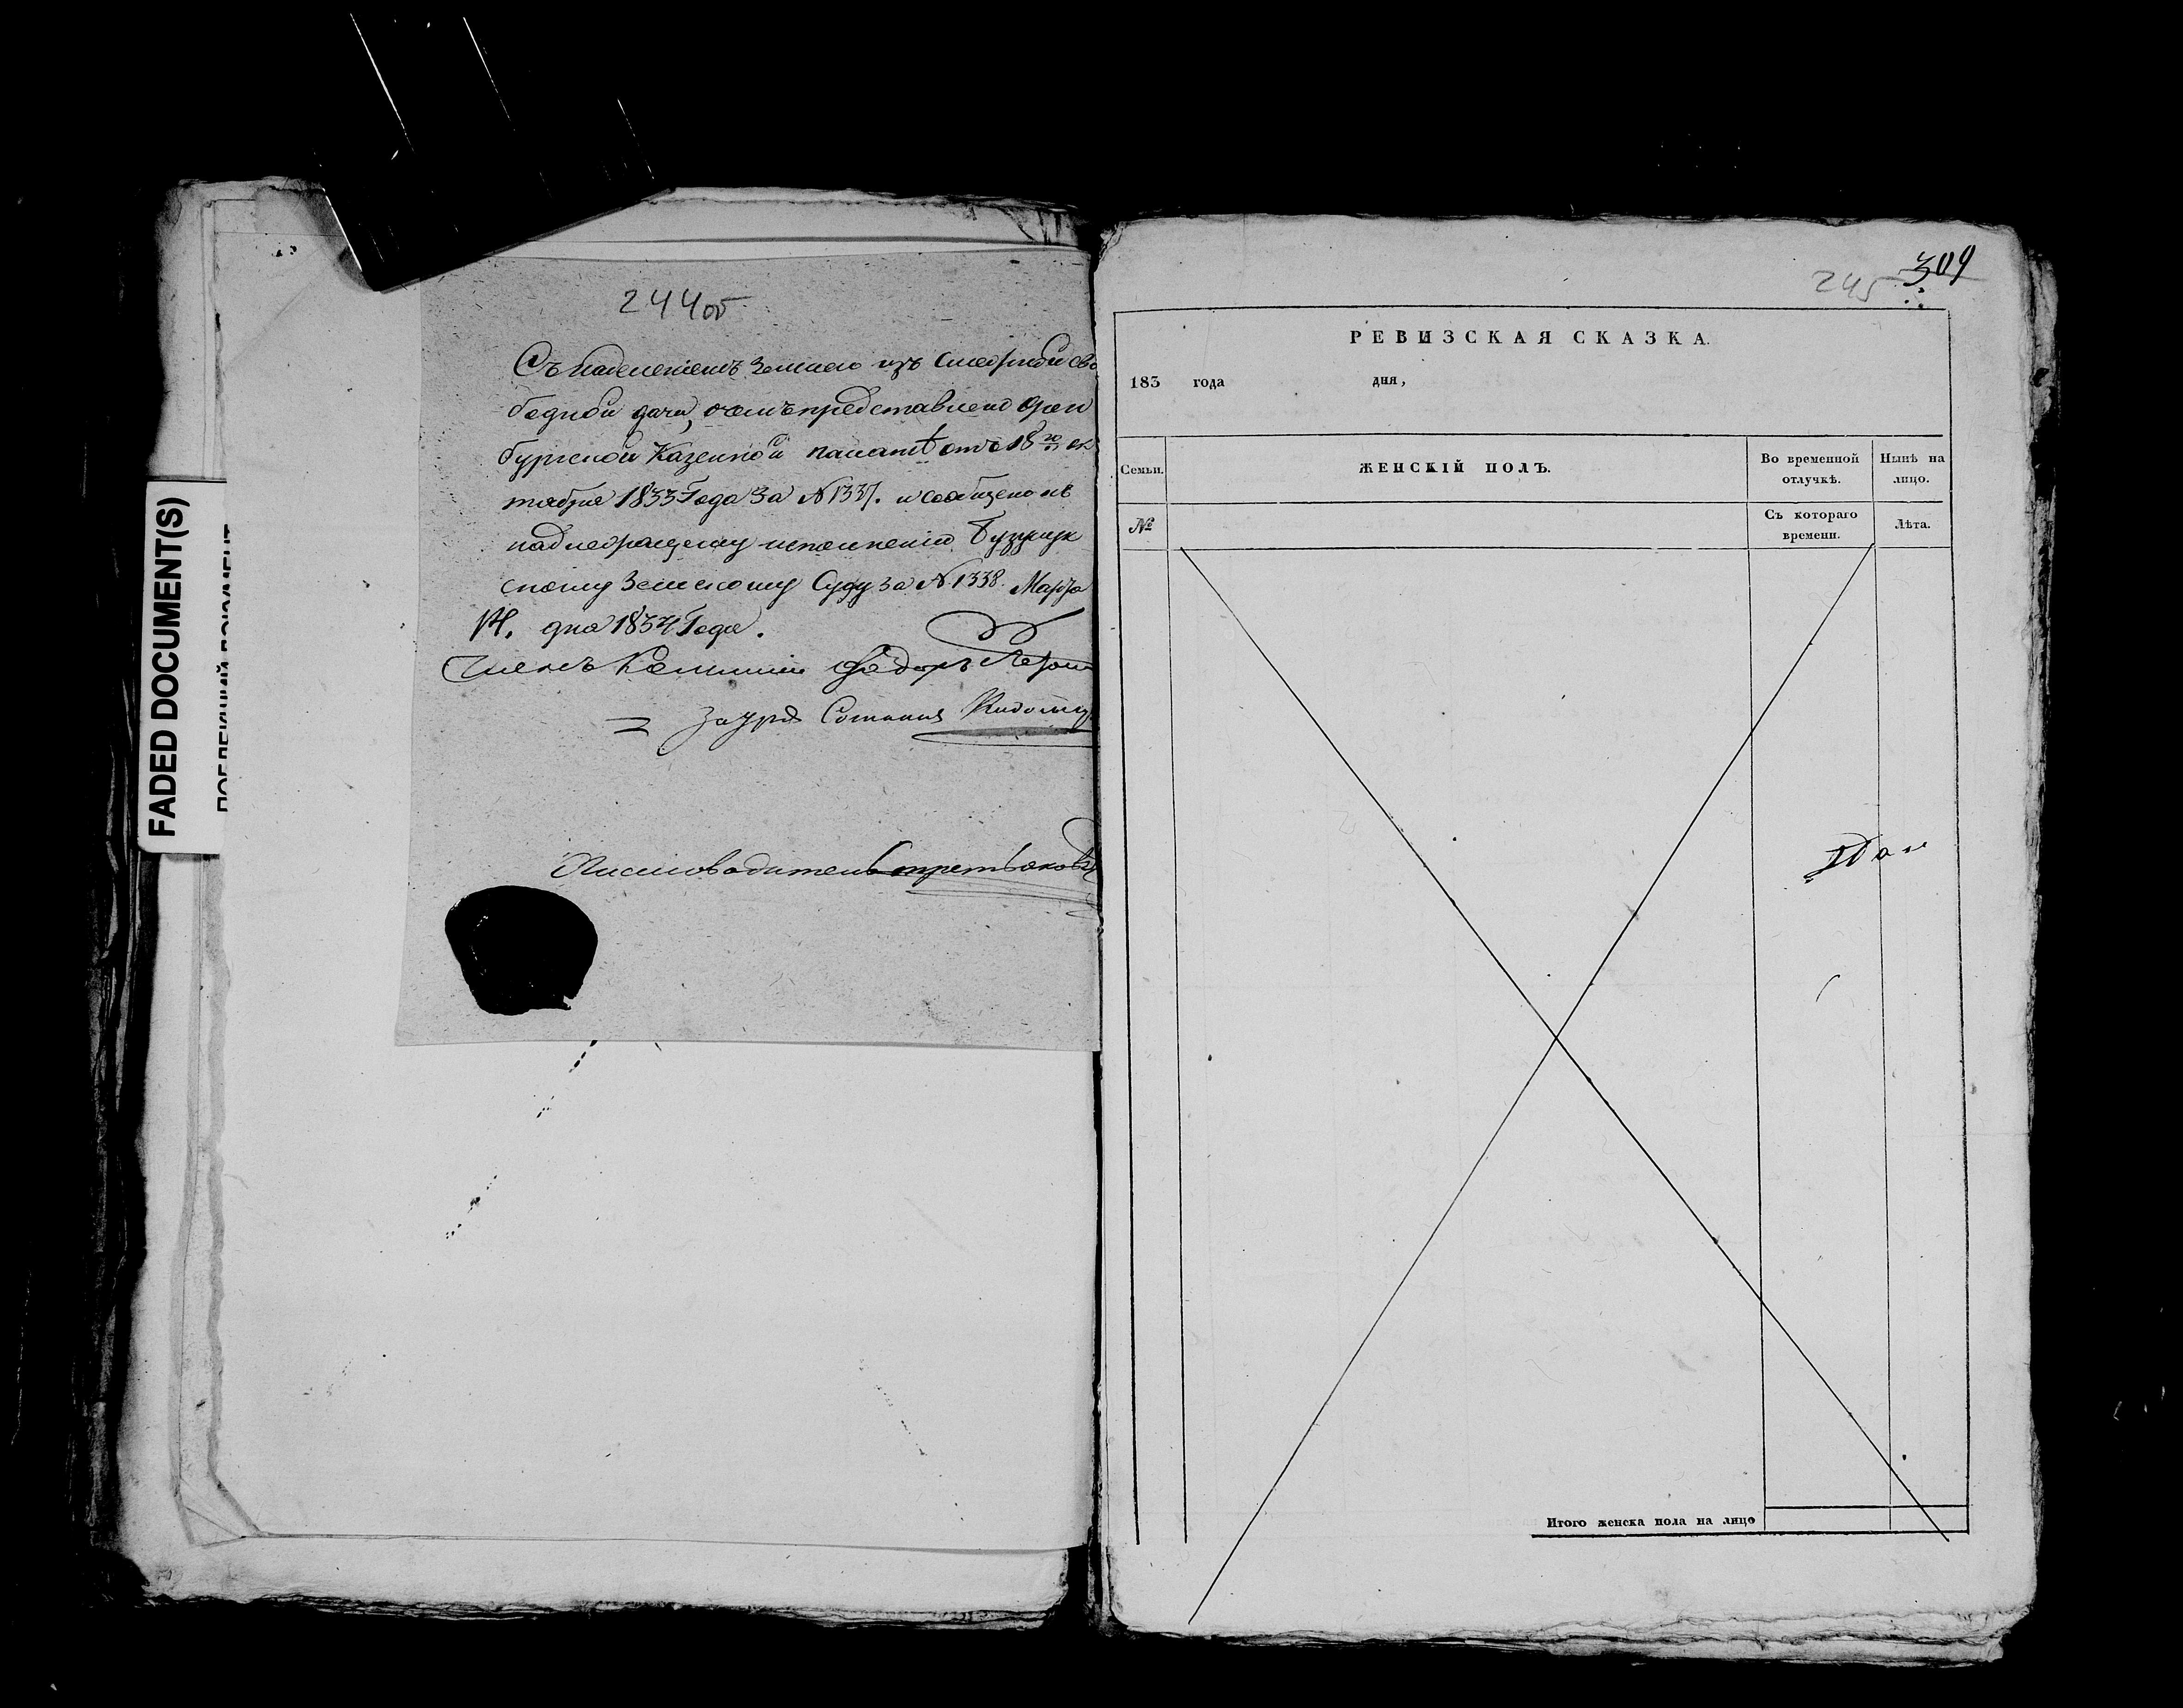 244об
Съ наделениемъ землею изъ смежной сво
бодной дачи, о чемъ представлено Орен
бургской Казенной палатѣ отъ 18
тября 1833 Года за №1337. и сообщено къ
надлежащему исполнению Бузулук
скому Земскому Суду за №1338. Марта
14. дня 1834 Года.
Членъ Комиссии Федоръ
Зауряд Сотникъ
Письмоводитель Третьяковъ
FADED DOCUMENT(S)
245 309
РЕВИЗСКАЯ СКАЗКА.
183 года дня,
Семьи. ЖЕНСКІЙ ПОЛЪ. Во временной отлучкѣ. Нынѣ на лицо.
№ Съ котораго времени. Лѣта.
Итого женска пола на лицо